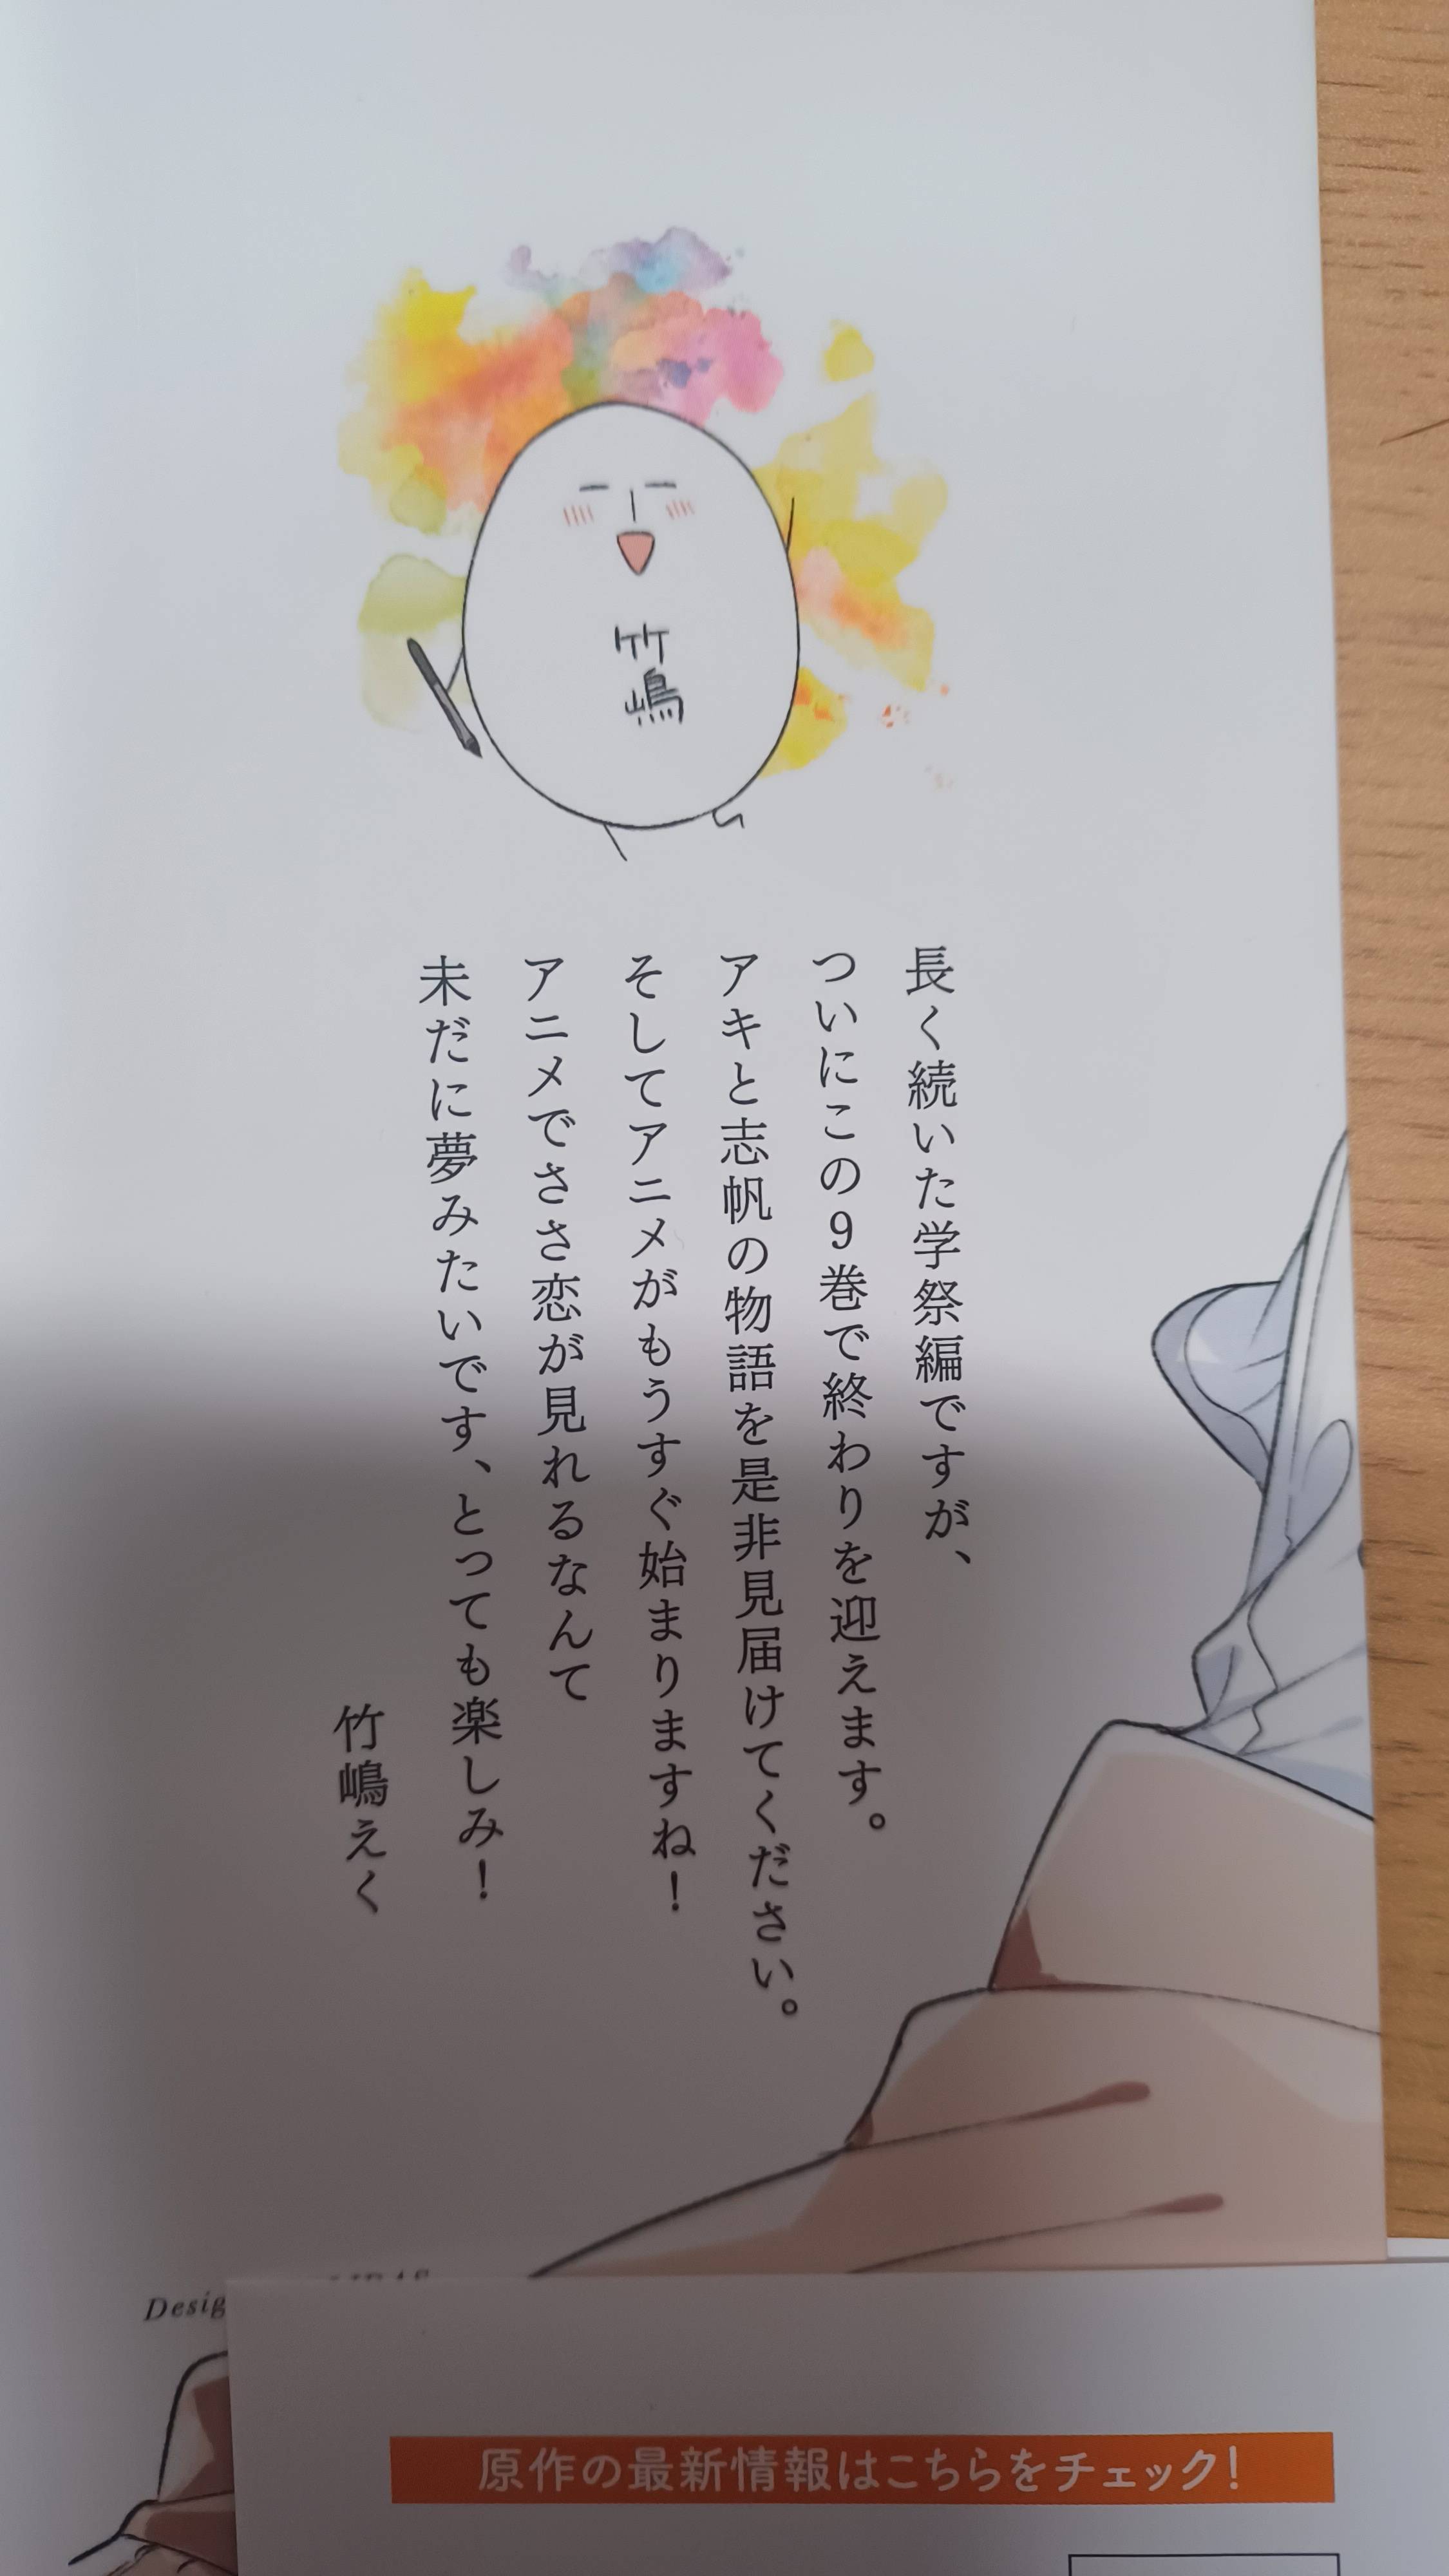 竹嶋
長く続いた学祭編ですが、
ついにこの9巻で終わりを迎えます。
アキと志帆の物語を是非見届けてください。
そしてアニメがもうすぐ始まりますね!
アニメでささ恋が見れるなんて
未だに夢みたいです、とっても楽しみ!
竹嶋えく
原作の最新情報はこちらをチェック!